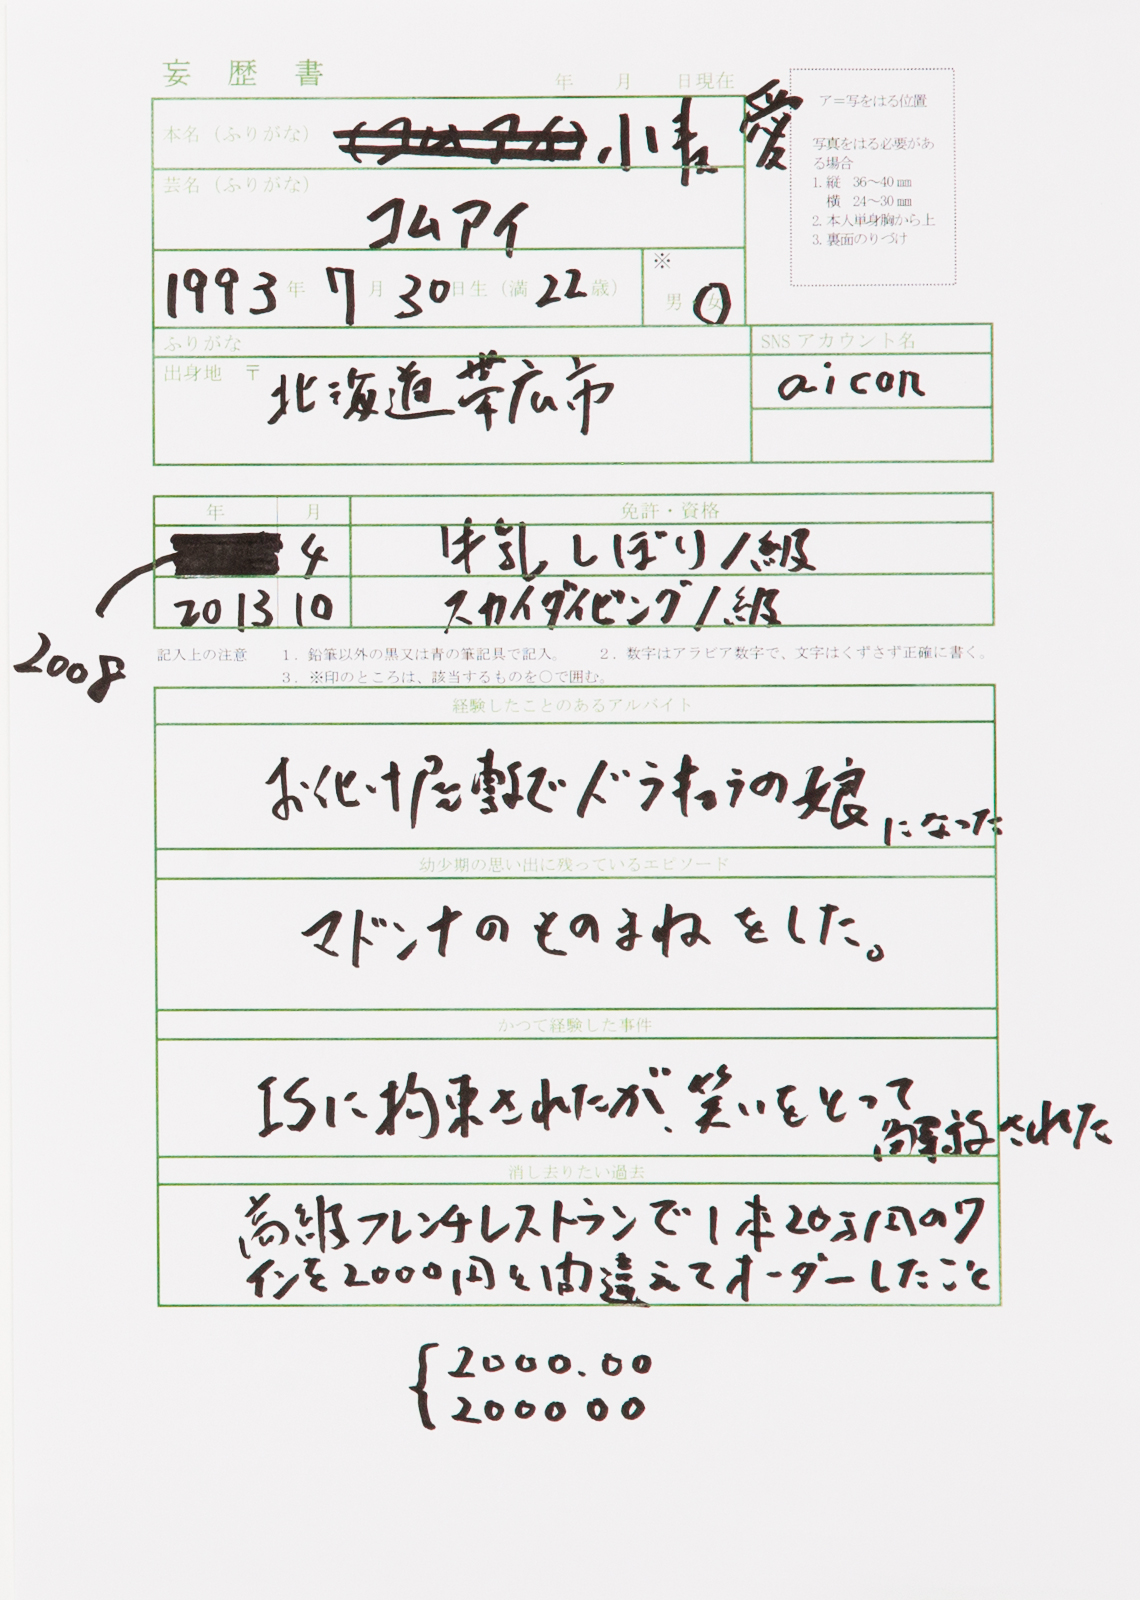 妄歴書
年 月 日現在
ア=写をはる位置
写真をはる必要があ
る場合
1. 縦 36～40㎜
横 24～30㎜
2. 本人単身胸から上
3. 裏面のりづけ
本名（ふりがな） 愛
芸名（ふりがな）
コムアイ
1993年 7月 30日生（満 22歳）
※
男・女
ふりがな
出身地 〒 北海道帯広市
SNSアカウント名
aicon
年 月 免許・資格
4 牛乳しぼり1級
2008
2013 10 スカイダイビング1級
記入上の注意 1．鉛筆以外の黒又は青の筆記具で記入。 2．数字はアラビア数字で、文字はくずさず正確に書く。
3．※印のところは、該当するものを○で囲む。
経験したことのあるアルバイト
お化け屋敷でドラキュラの娘になった
幼少期の思い出に残っているエピソード
マドンナのものまねをした。
かつて経験した事件
ISに拘束されたが、笑いをとって
解放された
消し去りたい過去
高級フレンチレストランで1本20万円のワ
インを2000円と間違えてオーダーしたこと
2000.00
200000